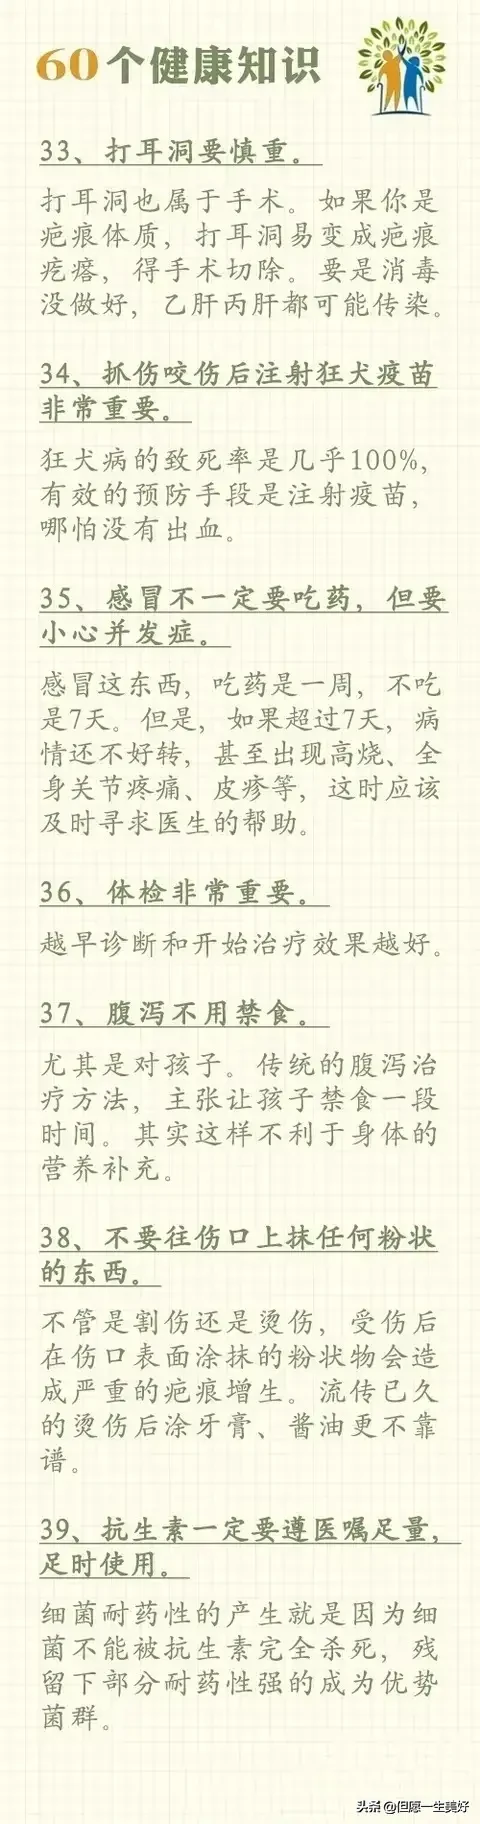 60个健康知识
33、打耳洞要慎重。
打耳洞也属于手术。如果你是
疤痕体质，打耳洞易变成疤痕
疙瘩，得手术切除。要是消毒
没做好，乙肝丙肝都可能传染。
34、抓伤咬伤后注射狂犬疫苗
非常重要。
狂犬病的致死率是几乎100%，
有效的预防手段是注射疫苗，
哪怕没有出血。
35、感冒不一定要吃药，但要
小心并发症。
感冒这东西，吃药是一周，不吃
是7天。但是，如果超过7天，病
情还不好转，甚至出现高烧、全
身关节疼痛、皮疹等，这时应该
及时寻求医生的帮助。
36、体检非常重要。
越早诊断和开始治疗效果越好。
37、腹泻不用禁食。
尤其是对孩子。传统的腹泻治
疗方法，主张让孩子禁食一段
时间。其实这样不利于身体的
营养补充。
38、不要往伤口上抹任何粉状
的东西。
不管是割伤还是烫伤，受伤后
在伤口表面涂抹的粉状物会造
成严重的疤痕增生。流传已久
的烫伤后涂牙膏、酱油更不靠
谱。
39、抗生素一定要遵医嘱足量，
足时使用。
细菌耐药性的产生就是因为细
菌不能被抗生素完全杀死，残
留下部分耐药性强的成为优势
菌群。
头条 @但愿一生美好